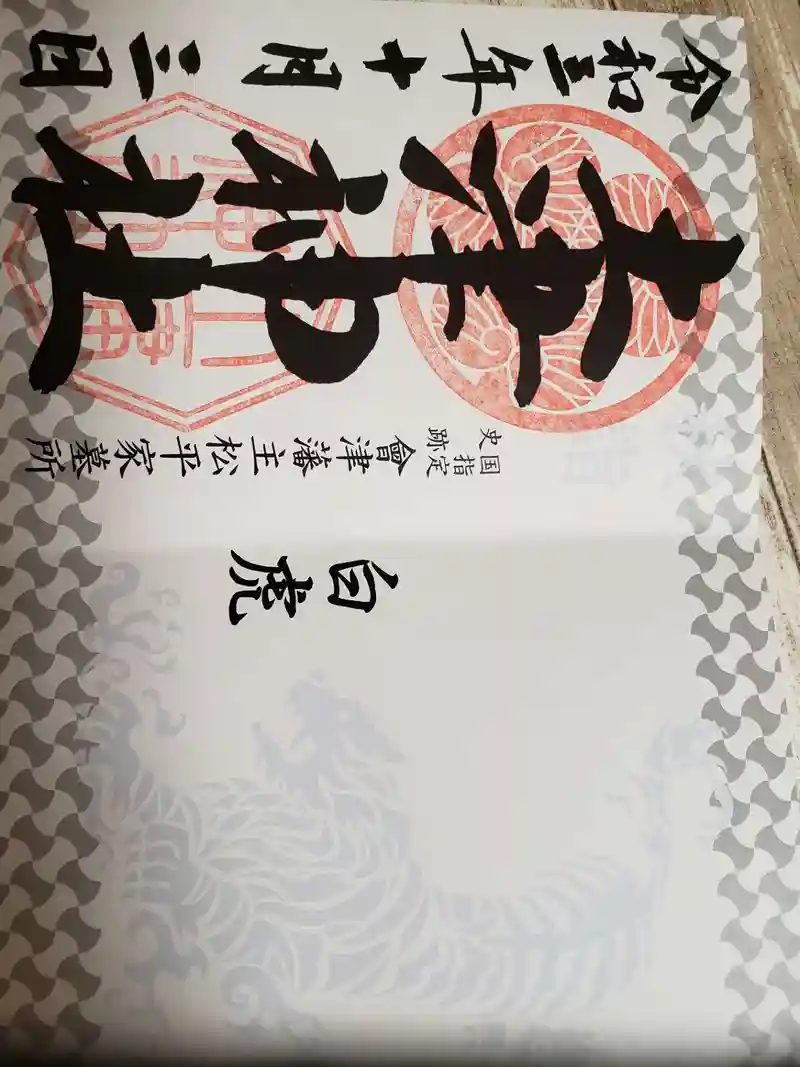 白虎
国指定
史跡
會津藩主松平家墓所
土津神社
令和三年十月三日